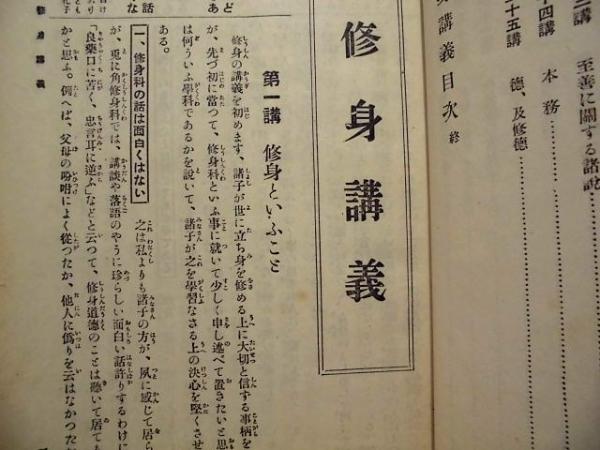 二講　至善に關する諸說……
十四講　本務……
十五講　德、及修德……
講義目次 終
修身講義
第一講　修身といふこと
修身の講義を初めます、諸子が世に立ち身を修める上に大切と信ずる事柄を
が、先づ初に當つて、修身科といふ事に就いて少しく申し述べて置きたいと思
は何ういふ學科であるかを說いて、諸子が之を學習なさる上の決心を堅くさせ
ある。
一、修身科の話は面白くはない
之は私よりも諸子の方が、夙に感じて居ら
が、兎に角修身科では、講談や落語のやうに珍らしい面白い話許りするわけに
「良藥口に苦く、忠言耳に逆ふ」などと云つて、修身道德のことは聽いて居ても
かと思ふ。例へば、父母の吩咐によく從つたか、他人に僞りを云はなかつた
修身講義